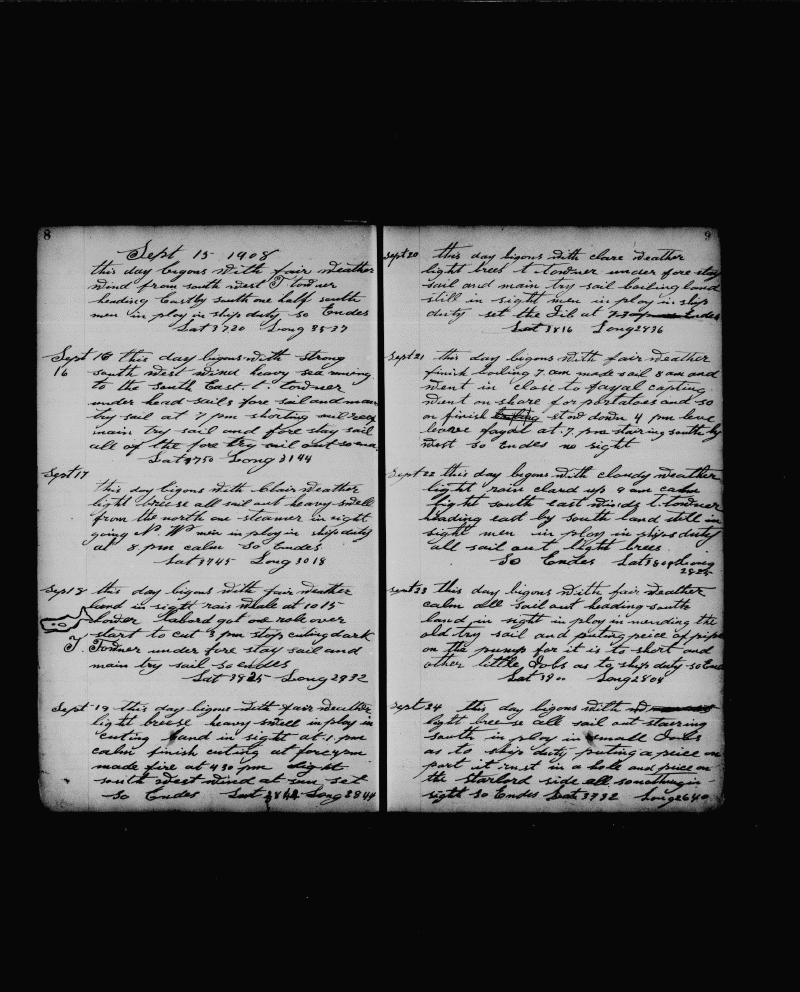 8
Sept 15 1908
this day bigons with fair weather
wind from south west T towner
heading Eastby south one half south
men in ploy in ships duty so Endes
Lat 3720 Long 3537
Sept 16 this day bigons with strong
16 south west wind heavy sea runing
to the south East. t. towner
under head sails fore sail and main
try sail at 7 pm shorting sail reef
main try sail and fore stay sail
all of the fore try sail out so
Lat 3750 Long 3144
Sept 17
this day bigons with Clair weather
light breese all sail out heavy swell
from the north one steamer in sight
going N. W men in ploy in ships duty
at 8 pm calm so Endes
Lat 3745 Long 3018
Sept 18 this day bigons with fair weather
land in sight rais whale at 10 15
lower labord got one role over
start to cut 3 pm stop cuting dark
T. Towner under fore stay sail and
main try sail so endes
Lat 3825 Long 2932
Sept 19 this day bigons with fair weather
light breese heavy swell in ploy in
cuting land in sight at 1. pm
calm finish cuting at fore pm
made fire at 430 pm light
south west wind at sun set
so Endes Lat Long 2844
9
Sept 20 this day bigons with clare weather
light brees t. towner under fore stay
sail and main try sail boiling land
still in sight men in ploy in ship
duty set the Jib at Endes
Lat 3816 Long 2836
Sept 21 this day bigons with fair weather
finish boiling 7 am made sail 8 am and
went in close to fayal capting
went on shore for portatoes and so
on finish stow down 4 pm leve
leave fayal at 7. pm stairing south by
west so Endes no sight
Sept 22 this day bigons with cloudy weather
light rain cleard up 9 am calm
light south east winds t. towner
heading east by south land still in
sight men in ploy in ships duty
all sail out light brees
So Endes Lat 3809 Long
2825
Sept 23 this day bigons with fair weather
calm all sail out heading south
land in sight in ploy in mending the
old try sail and puting peice of pipe
on the pump for it is to short and
other little Jobs as to ship duty so Endes
Lat Long 2804
Sept 24 this day bigons with
light breese all sail out stairing
south in ploy in small Jobs
as to ship duty puting a peice on
port it rust in a hole and peice on
the starbord side all something in
sight So Endes Lat 3732 Long 2640